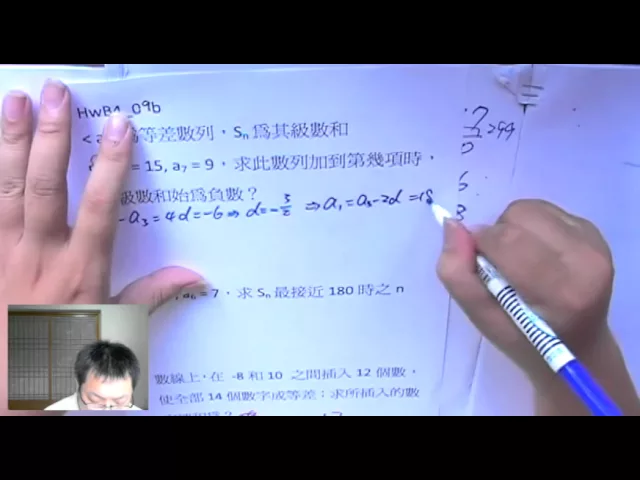 HwB4_09b
為等差數列，Sₙ 為其級數和
= 15, a₇ = 9，求此數列加到第幾項時，
級數和始為負數？
- a₃ = 4d = -6 ⇒ d = -3/2 ⇒ a₁ = a₃ - 2d = 18
a₆ = 7，求 Sₙ 最接近 180 時之 n
數線上，在 -8 和 10 之間插入 12 個數，
使全部 14 個數字成等差；求所插入的數